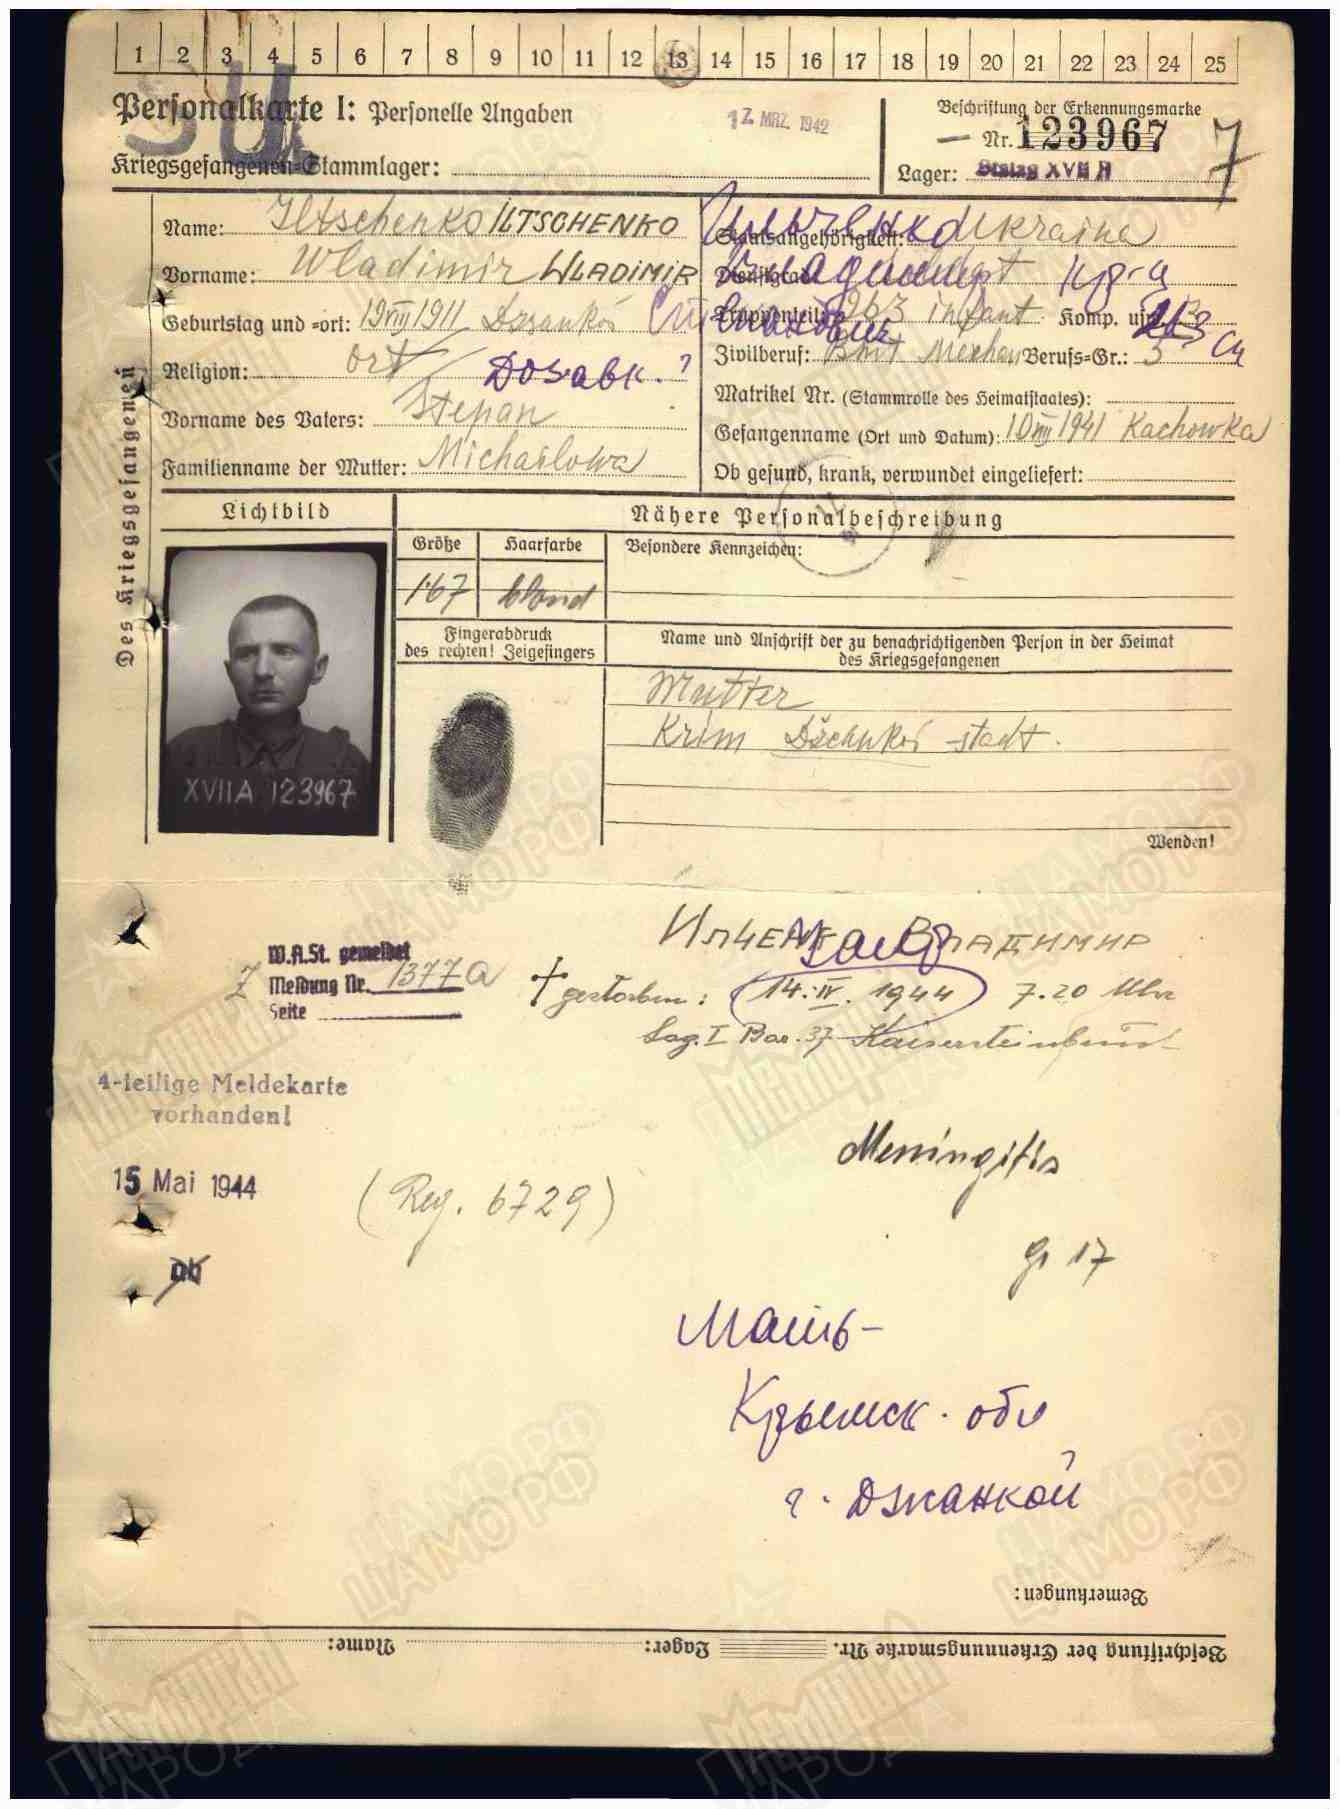 1 2 3 4 5 6 7 8 9 10 11 12 13 14 15 16 17 18 19 20 21 22 23 24 25
SU
Personalkarte I: Personelle Angaben
17. MRZ. 1942
Beschriftung der Erkennungsmarke
Nr. 123967
7
Kriegsgefangenen-Stammlager:
Lager: Stalag XVII A
Des Kriegsgefangenen
Name: Iltschenko ILTSCHENKO
Ильченко
Staatsangehörigkeit: Ukraine
Vorname: Wladimir WLADIMIR
Владимир
Dienstgrad:
кр-ц
Geburtstag und -ort: 19 VIII 1911 Dzankoi
Степанович
Truppenteil: 963 infant. Komp. usw.:
Religion: ort
Добавк.?
Zivilberuf: Mechan Berufs-Gr.: 5
Vorname des Vaters: Stepan
Matrikel Nr. (Stammrolle des Heimatstaates):
Gefangenname (Ort und Datum): 10 VIII 1941 Kachowka
Familienname der Mutter: Michailowa
Ob gesund, krank, verwundet eingeliefert:
Lichtbild
Nähere Personalbeschreibung
Größe
Haarfarbe
Besondere Kennzeichen:
1.67
blond
Fingerabdruck
des rechten! Zeigefingers
Name und Anschrift der zu benachrichtigenden Person in der Heimat
des Kriegsgefangenen
Mutter
Krim Dschnkoi stadt.
XVIIA 123967
Wenden!
Владимир
W.A.St. gemeldet
Meldung Nr. 1377a
Seite
† gestorben: 14. IV. 1944 7.20 Uhr
Lag. I Bar. 37 Kaisersteinbruch
4-teilige Meldekarte
vorhanden!
Meningitis
15 Mai 1944
(Reg. 6729)
Gr 17
ab
Мать-
Крымск. обл
г. Джанкой
Bemerkungen:
Beschriftung der Erkennungsmarke Nr. Lager: Name:
ЦАМО РФ
ЦАМО РФ
Память
народа